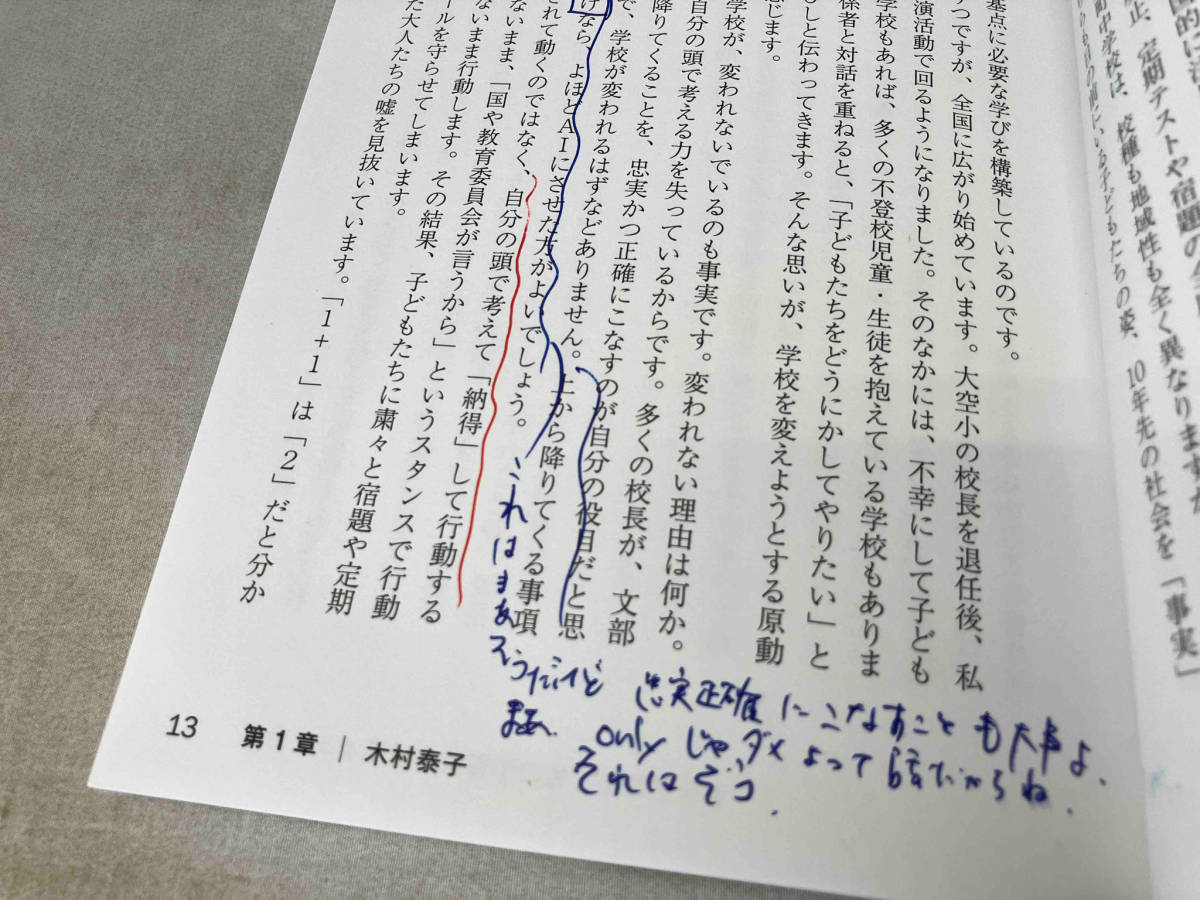 国的に
定期テストや宿題の
校種も地域性も全く異なりますが
の目の前にいる子どもたちの姿、10年先の社会を「事実」
基点に必要な学びを構築しているのです。
ずつですが、全国に広がり始めています。大空小の校長を退任後、私
演活動で回るようになりました。そのなかには、不幸にして子ども
学校もあれば、多くの不登校児童・生徒を抱えている学校もありま
係者と対話を重ねると、「子どもたちをどうにかしてやりたい」と
しと伝わってきます。そんな思いが、学校を変えようとする原動
感じます。
学校が、変われないでいるのも事実です。変われない理由は何か。
自分の頭で考える力を失っているからです。多くの校長が、文部
降りてくることを、忠実かつ正確にこなすのが自分の役目だと思
で、学校が変われるはずなどありません。上から降りてくる事項
けなら、よほどAIにさせた方がよいでしょう。
されて動くのではなく、自分の頭で考えて「納得」して行動する
ないまま、「国や教育委員会が言うから」というスタンスで行動
ないまま行動します。その結果、子どもたちに粛々と宿題や定期
ールを守らせてしまいます。
た大人たちの嘘を見抜いています。「1+1」は「2」だと分か
これはまあ
そうだけど
まあ、
忠実正確にこなすことも大事よ、
onlyじゃダメよって話だからね、
それはそこ、
13 第1章 | 木村泰子